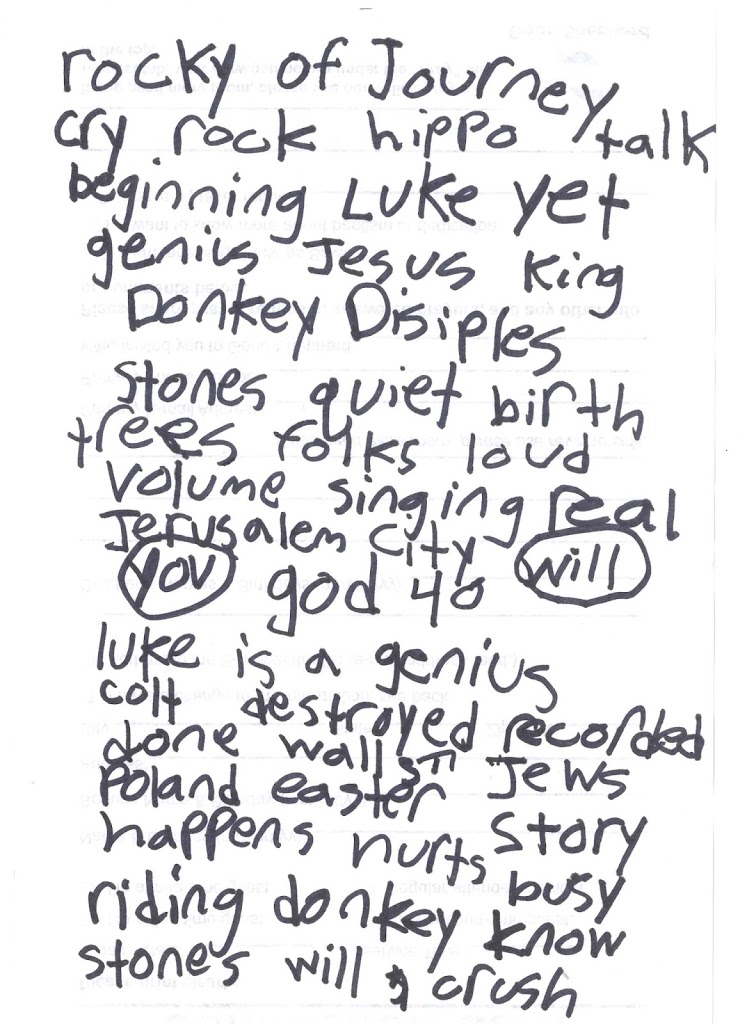 rocky of Journey
cry rock hippo talk
beginning Luke yet
genius Jesus King
Donkey Disiples
stones quiet birth
trees folks loud
volume singing real
Jerusalem City
you god 40 will
luke is a genius
colt destroyed recorded
done walls Jews
Poland easter
happens hurts story
riding donkey busy
stones will crush know